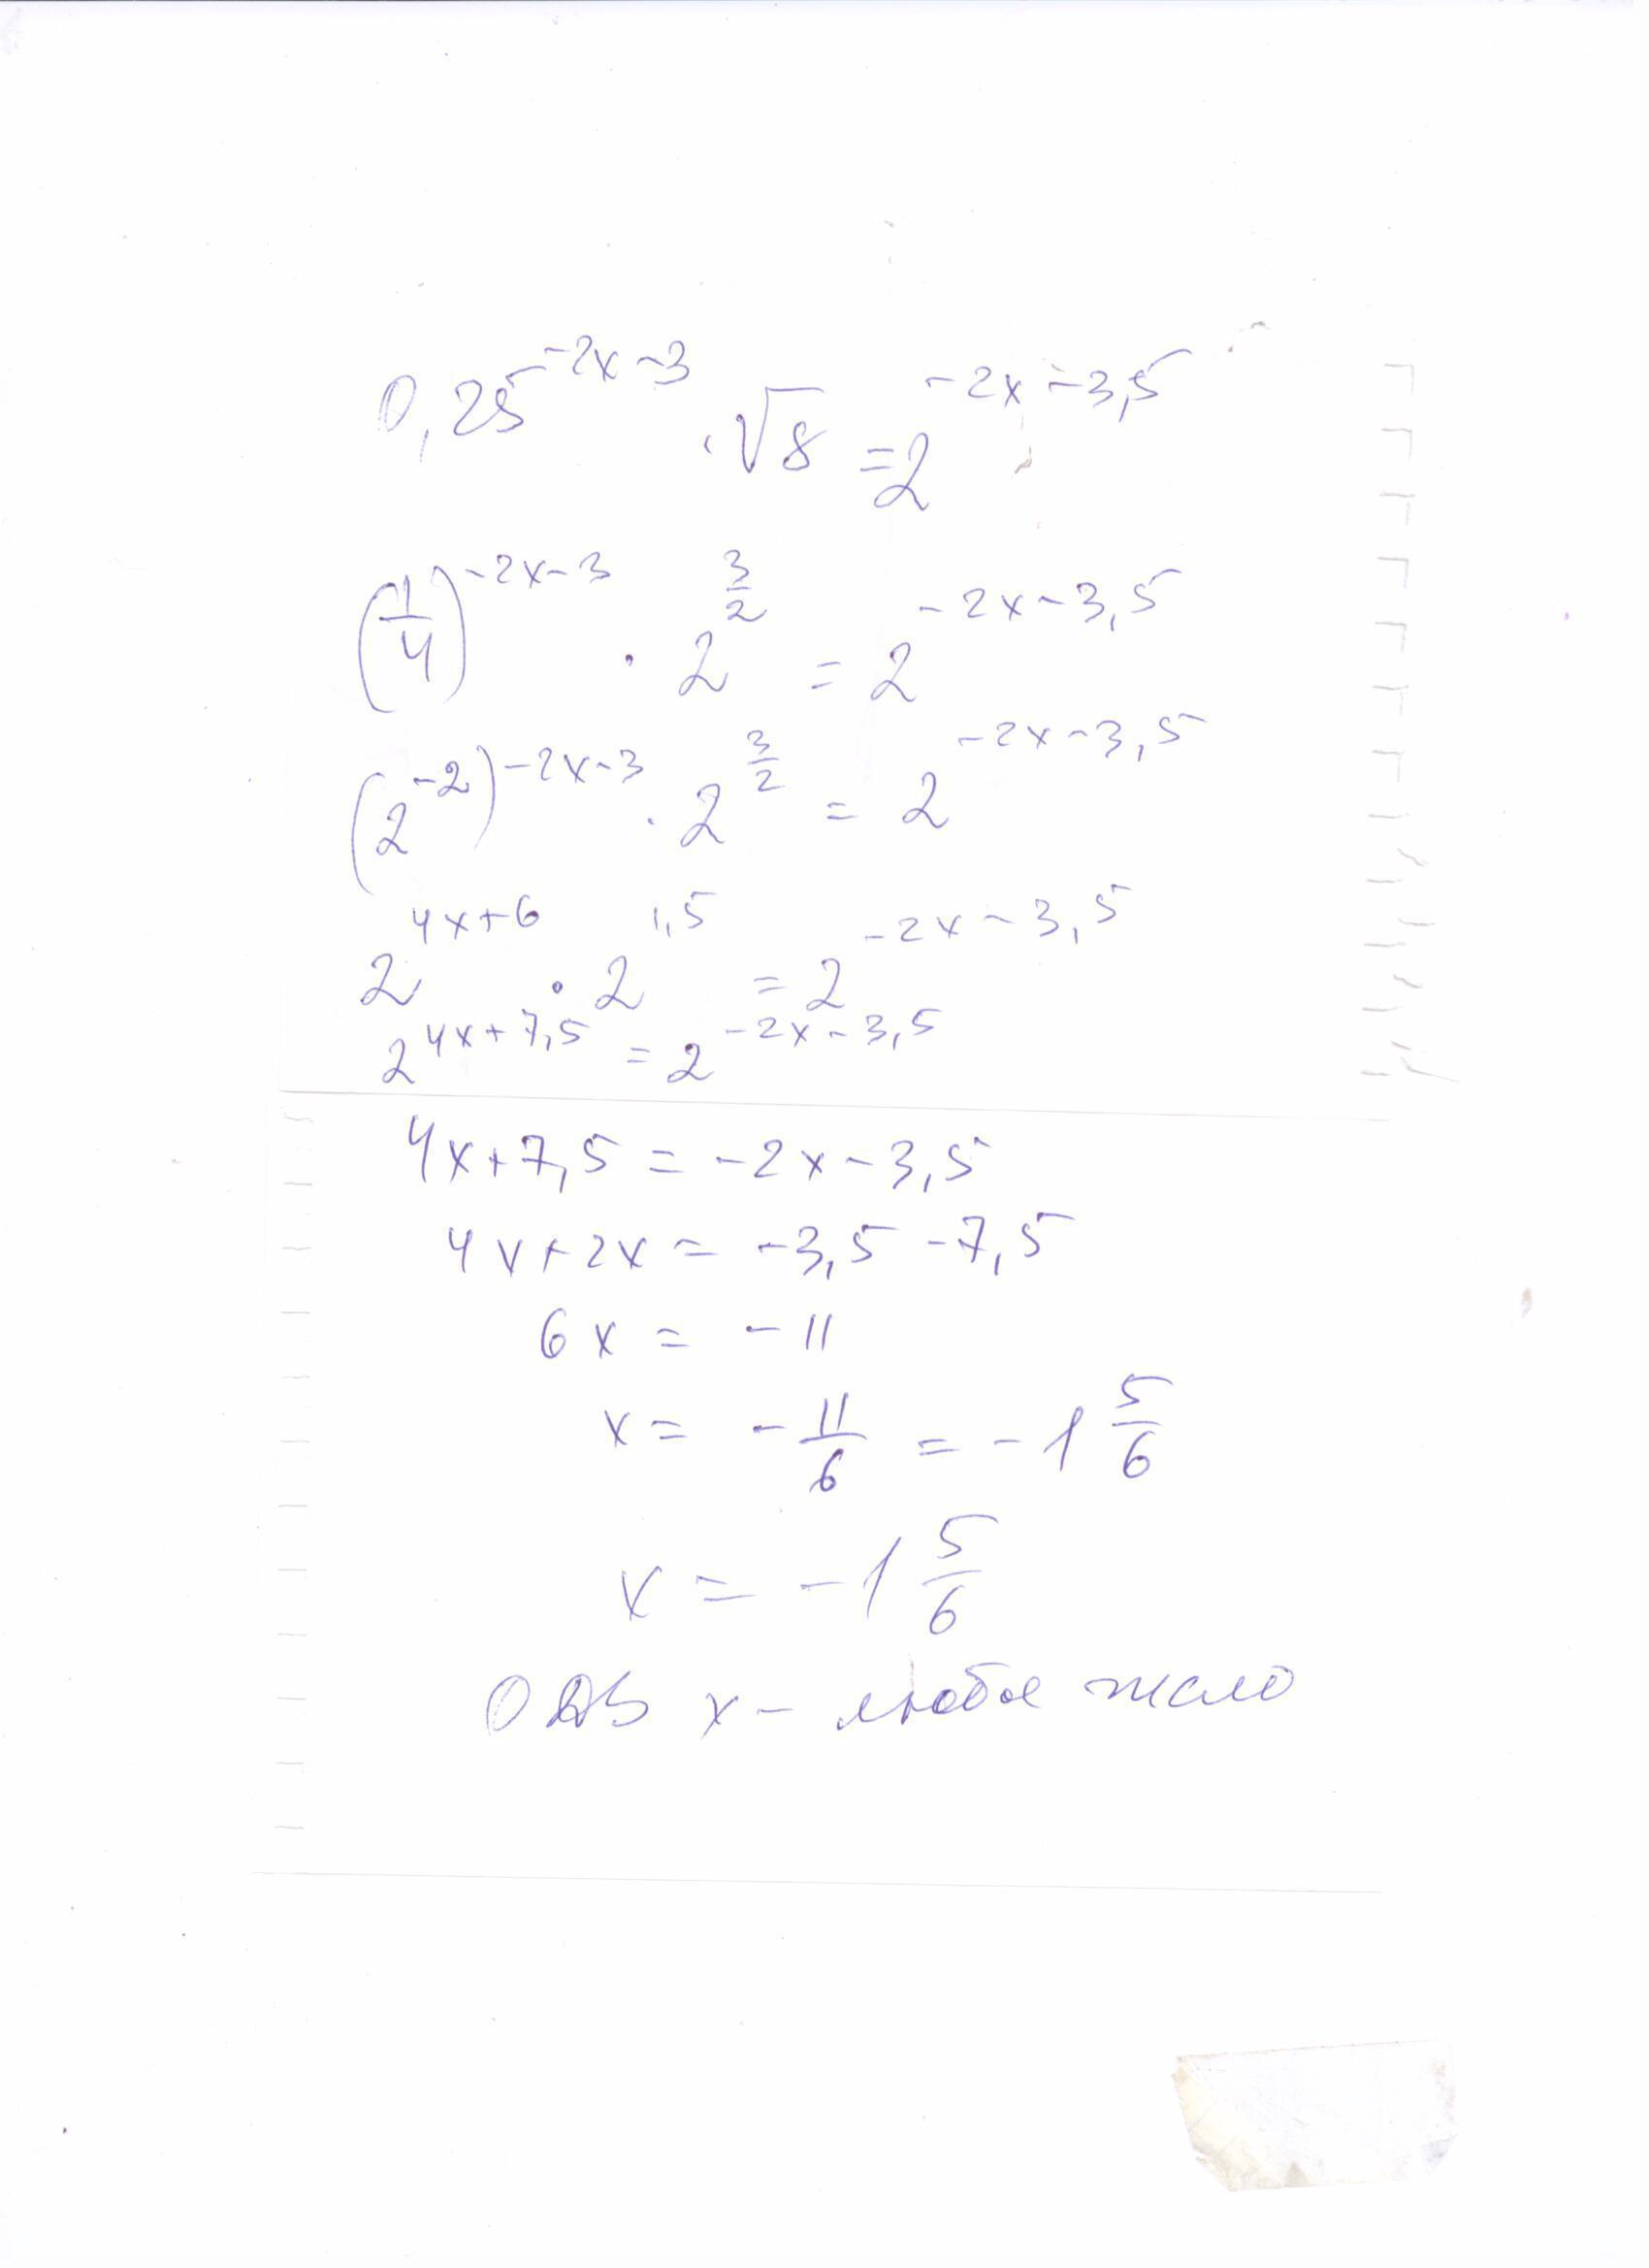 0,25^{-2x-3} · √8 = 2^{-2x-3,5}
(1/4)^{-2x-3} · 2^{3/2} = 2^{-2x-3,5}
(2^{-2})^{-2x-3} · 2^{3/2} = 2^{-2x-3,5}
2^{4x+6} · 2^{1,5} = 2^{-2x-3,5}
2^{4x+7,5} = 2^{-2x-3,5}
4x+7,5 = -2x-3,5
4x+2x = -3,5-7,5
6x = -11
x = -11/6 = -1 5/6
x = -1 5/6
ОДЗ x - любое число